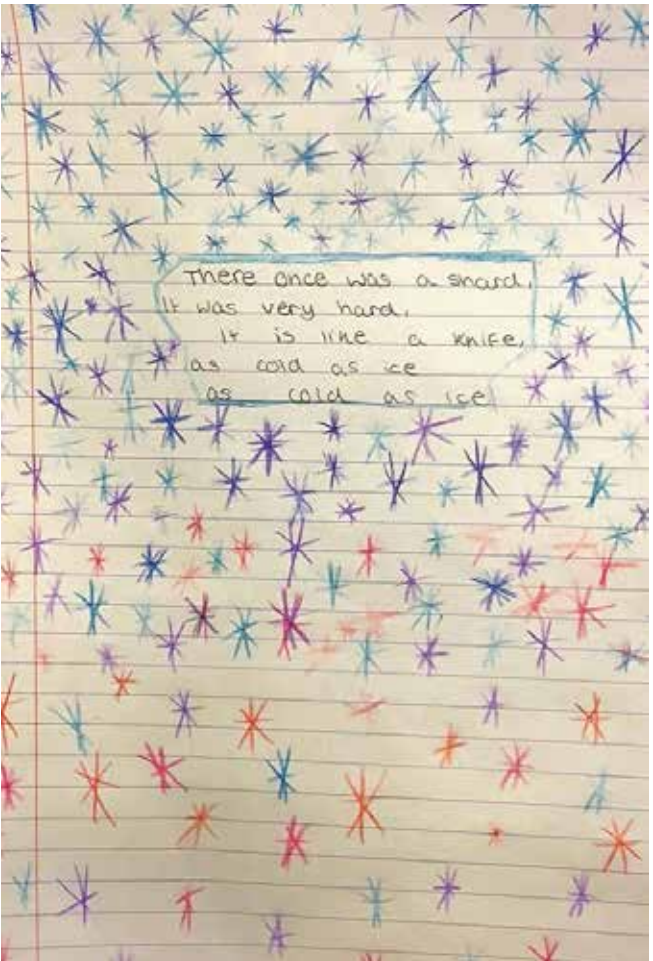 There once was a shard,
It was very hard,
It is like a knife,
as cold as ice
as cold as ice